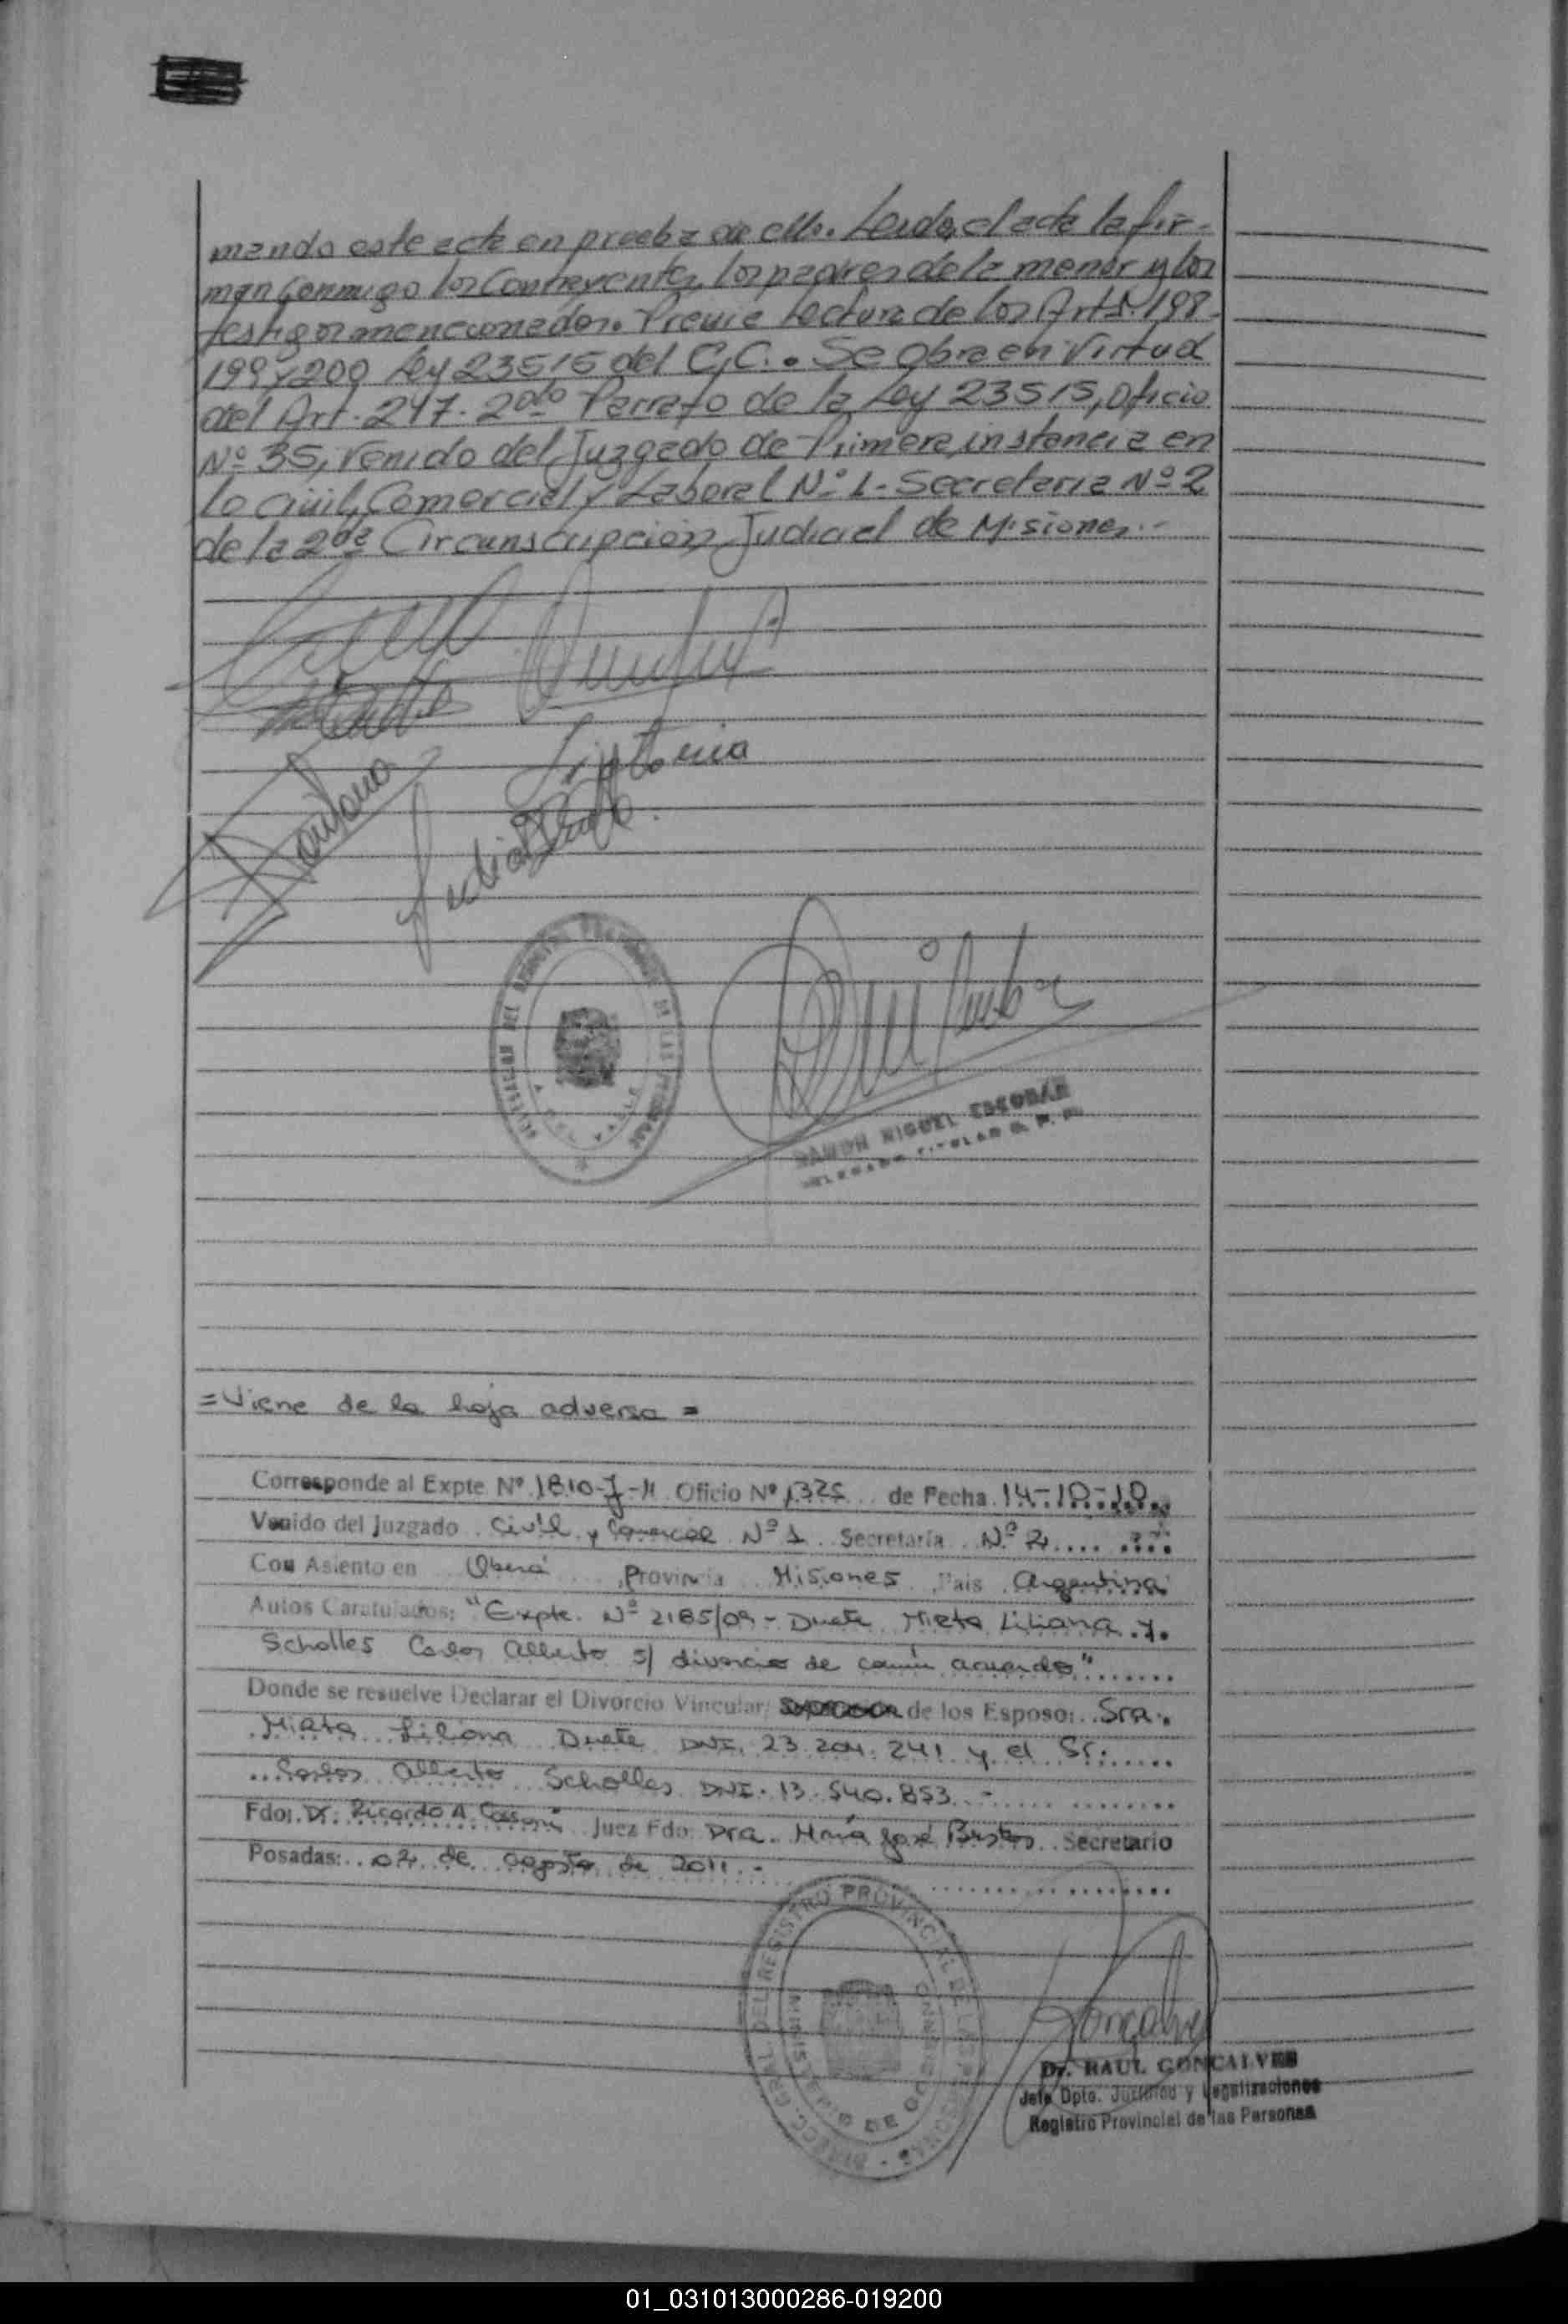 mando este acta en prueba de ello. Leida el acta la fir-
man conmigo los Contrayentes, los padres de la menor y los
testigos mencionados. Previa Lectura de los Arts. 198-
199 y 200 Ley 23515 del C.C.. Se obra en Virtud
del Art. 247. 2do Parrafo de la Ley 23515, oficio
Nº 35, Venido del Juzgado de Primera instancia en
lo Civil, Comercial y Laboral Nº 1- Secretaria Nº 2
de la 2da Circunscripción Judicial de Misiones.-
RAMON MIGUEL ESCOBAR
DELEGADO TITULAR R. P. P.
=Viene de la hoja adversa=
Corresponde al Expte Nº 1810-J-11 Oficio Nº 1325 de Fecha 14-10-10
Venido del Juzgado Civil y Comercial Nº 1 Secretaría Nº 2
Con Asiento en Oberá Provincia Misiones País Argentina
Autos Caratulados: "Expte. Nº 2185/09 - Duete Mirta Liliana y
Scholles Carlos Alberto s/ divorcio de común acuerdo"
Donde se resuelve Declarar el Divorcio Vincular de los Esposo: Sra.
Mirta Liliana Duete DNI. 23.204.241 y el Sr.
Carlos Alberto Scholles DNI. 13.540.853.-
Fdo: Dr. Ricardo A. Juez Fdo: Dra. María José Bustos Secretario
Posadas: 02 de agosto de 2011.-
DIRECC. GRAL. DEL REGISTRO PROVINCIAL DE LAS PERSONAS
MINISTERIO DE GOBIERNO
Goncalves
Dr. RAUL GONCALVES
Jefe Dpto. Jurídico y Legalizaciones
Registro Provincial de las Personas
01_031013000286-019200